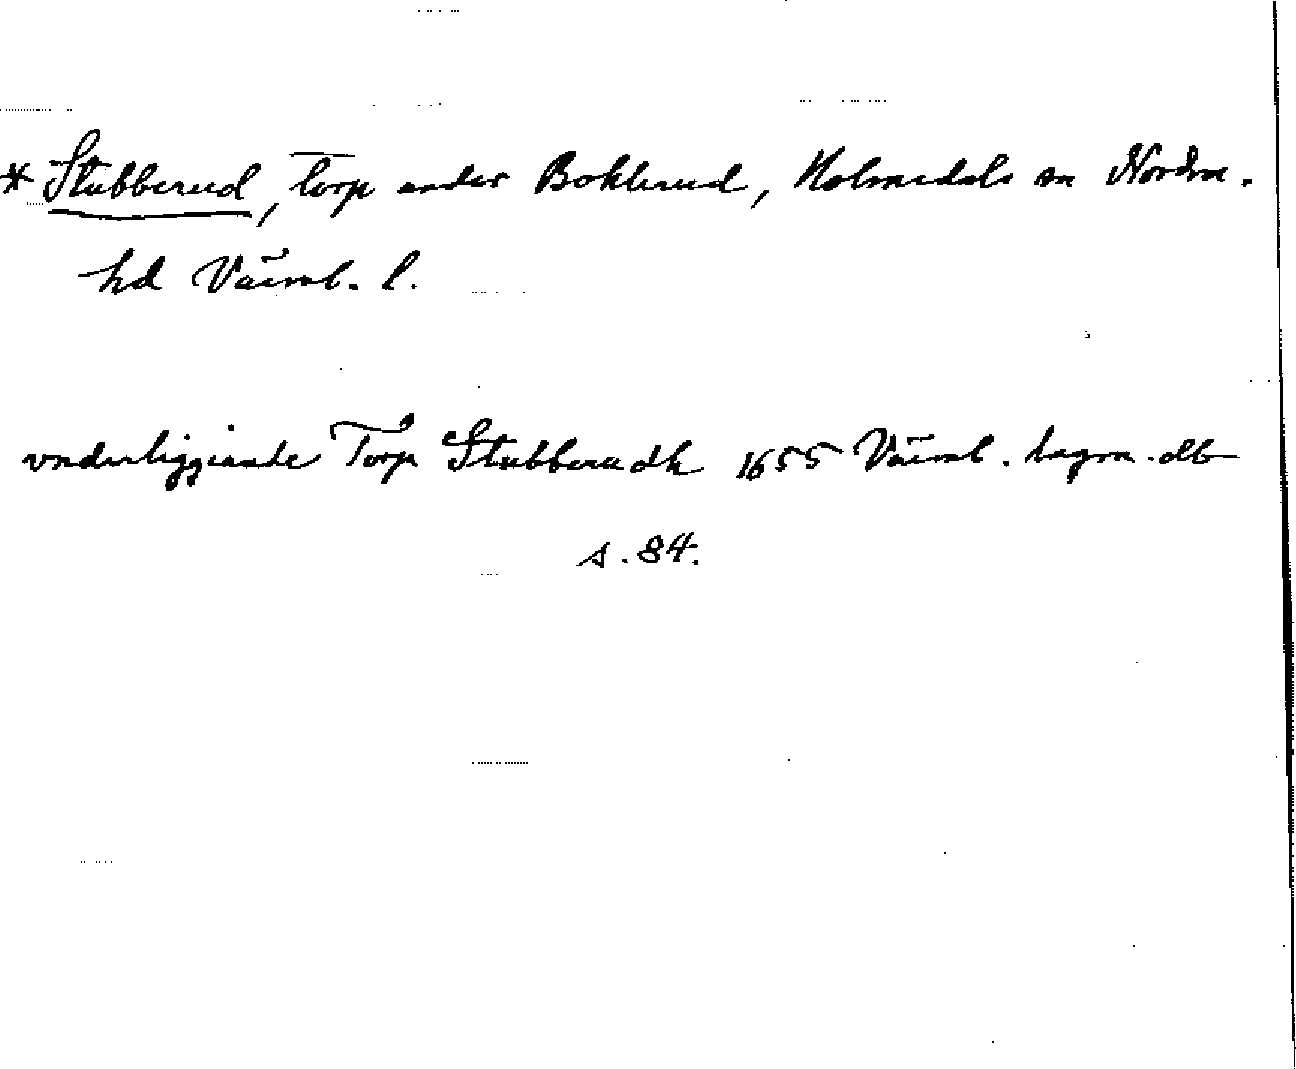 * Stubberud, torp under Boklerud, Holmedals sn Nordm.
hd Värml. l.
vnderliggiande Torp Stubberudh 1655 Värml. lagm. db
s. 84.